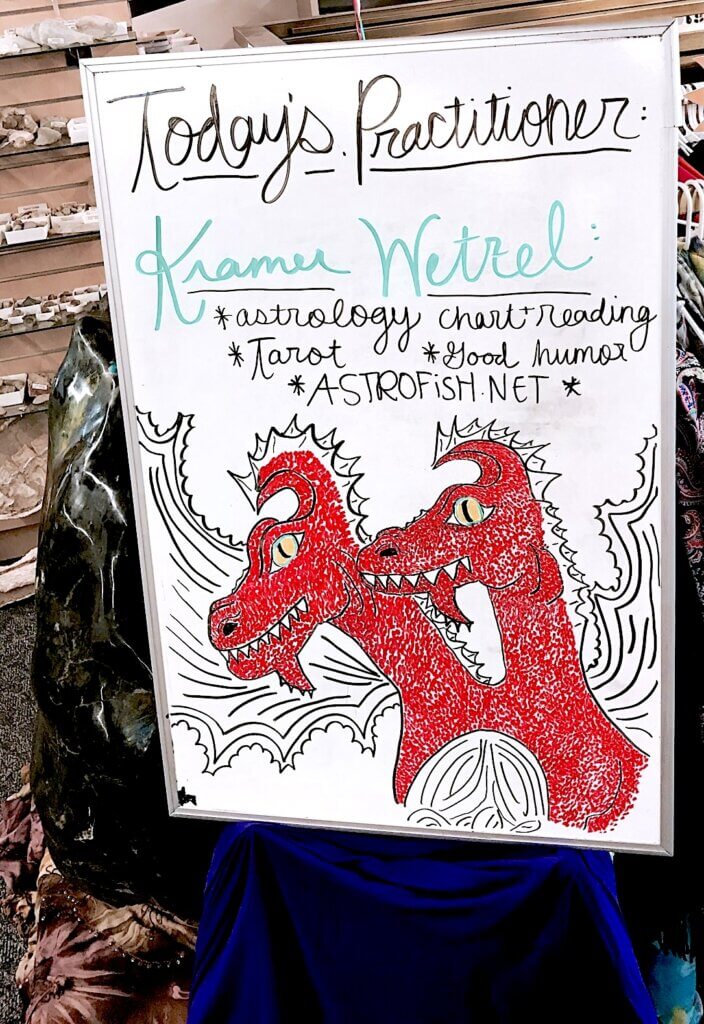 Today's Practitioner:
Kramer Wetzel:
*astrology chart+reading
*Tarot *Good humor
*ASTROFiSH.NET *